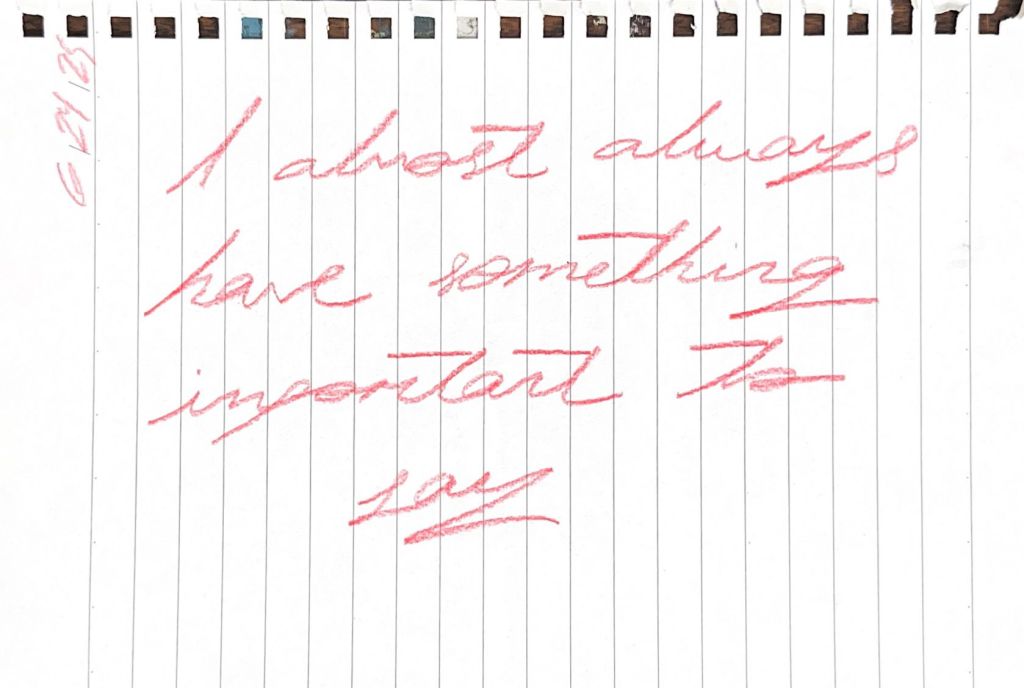 6/24/25
I almost always
have something
important to
say